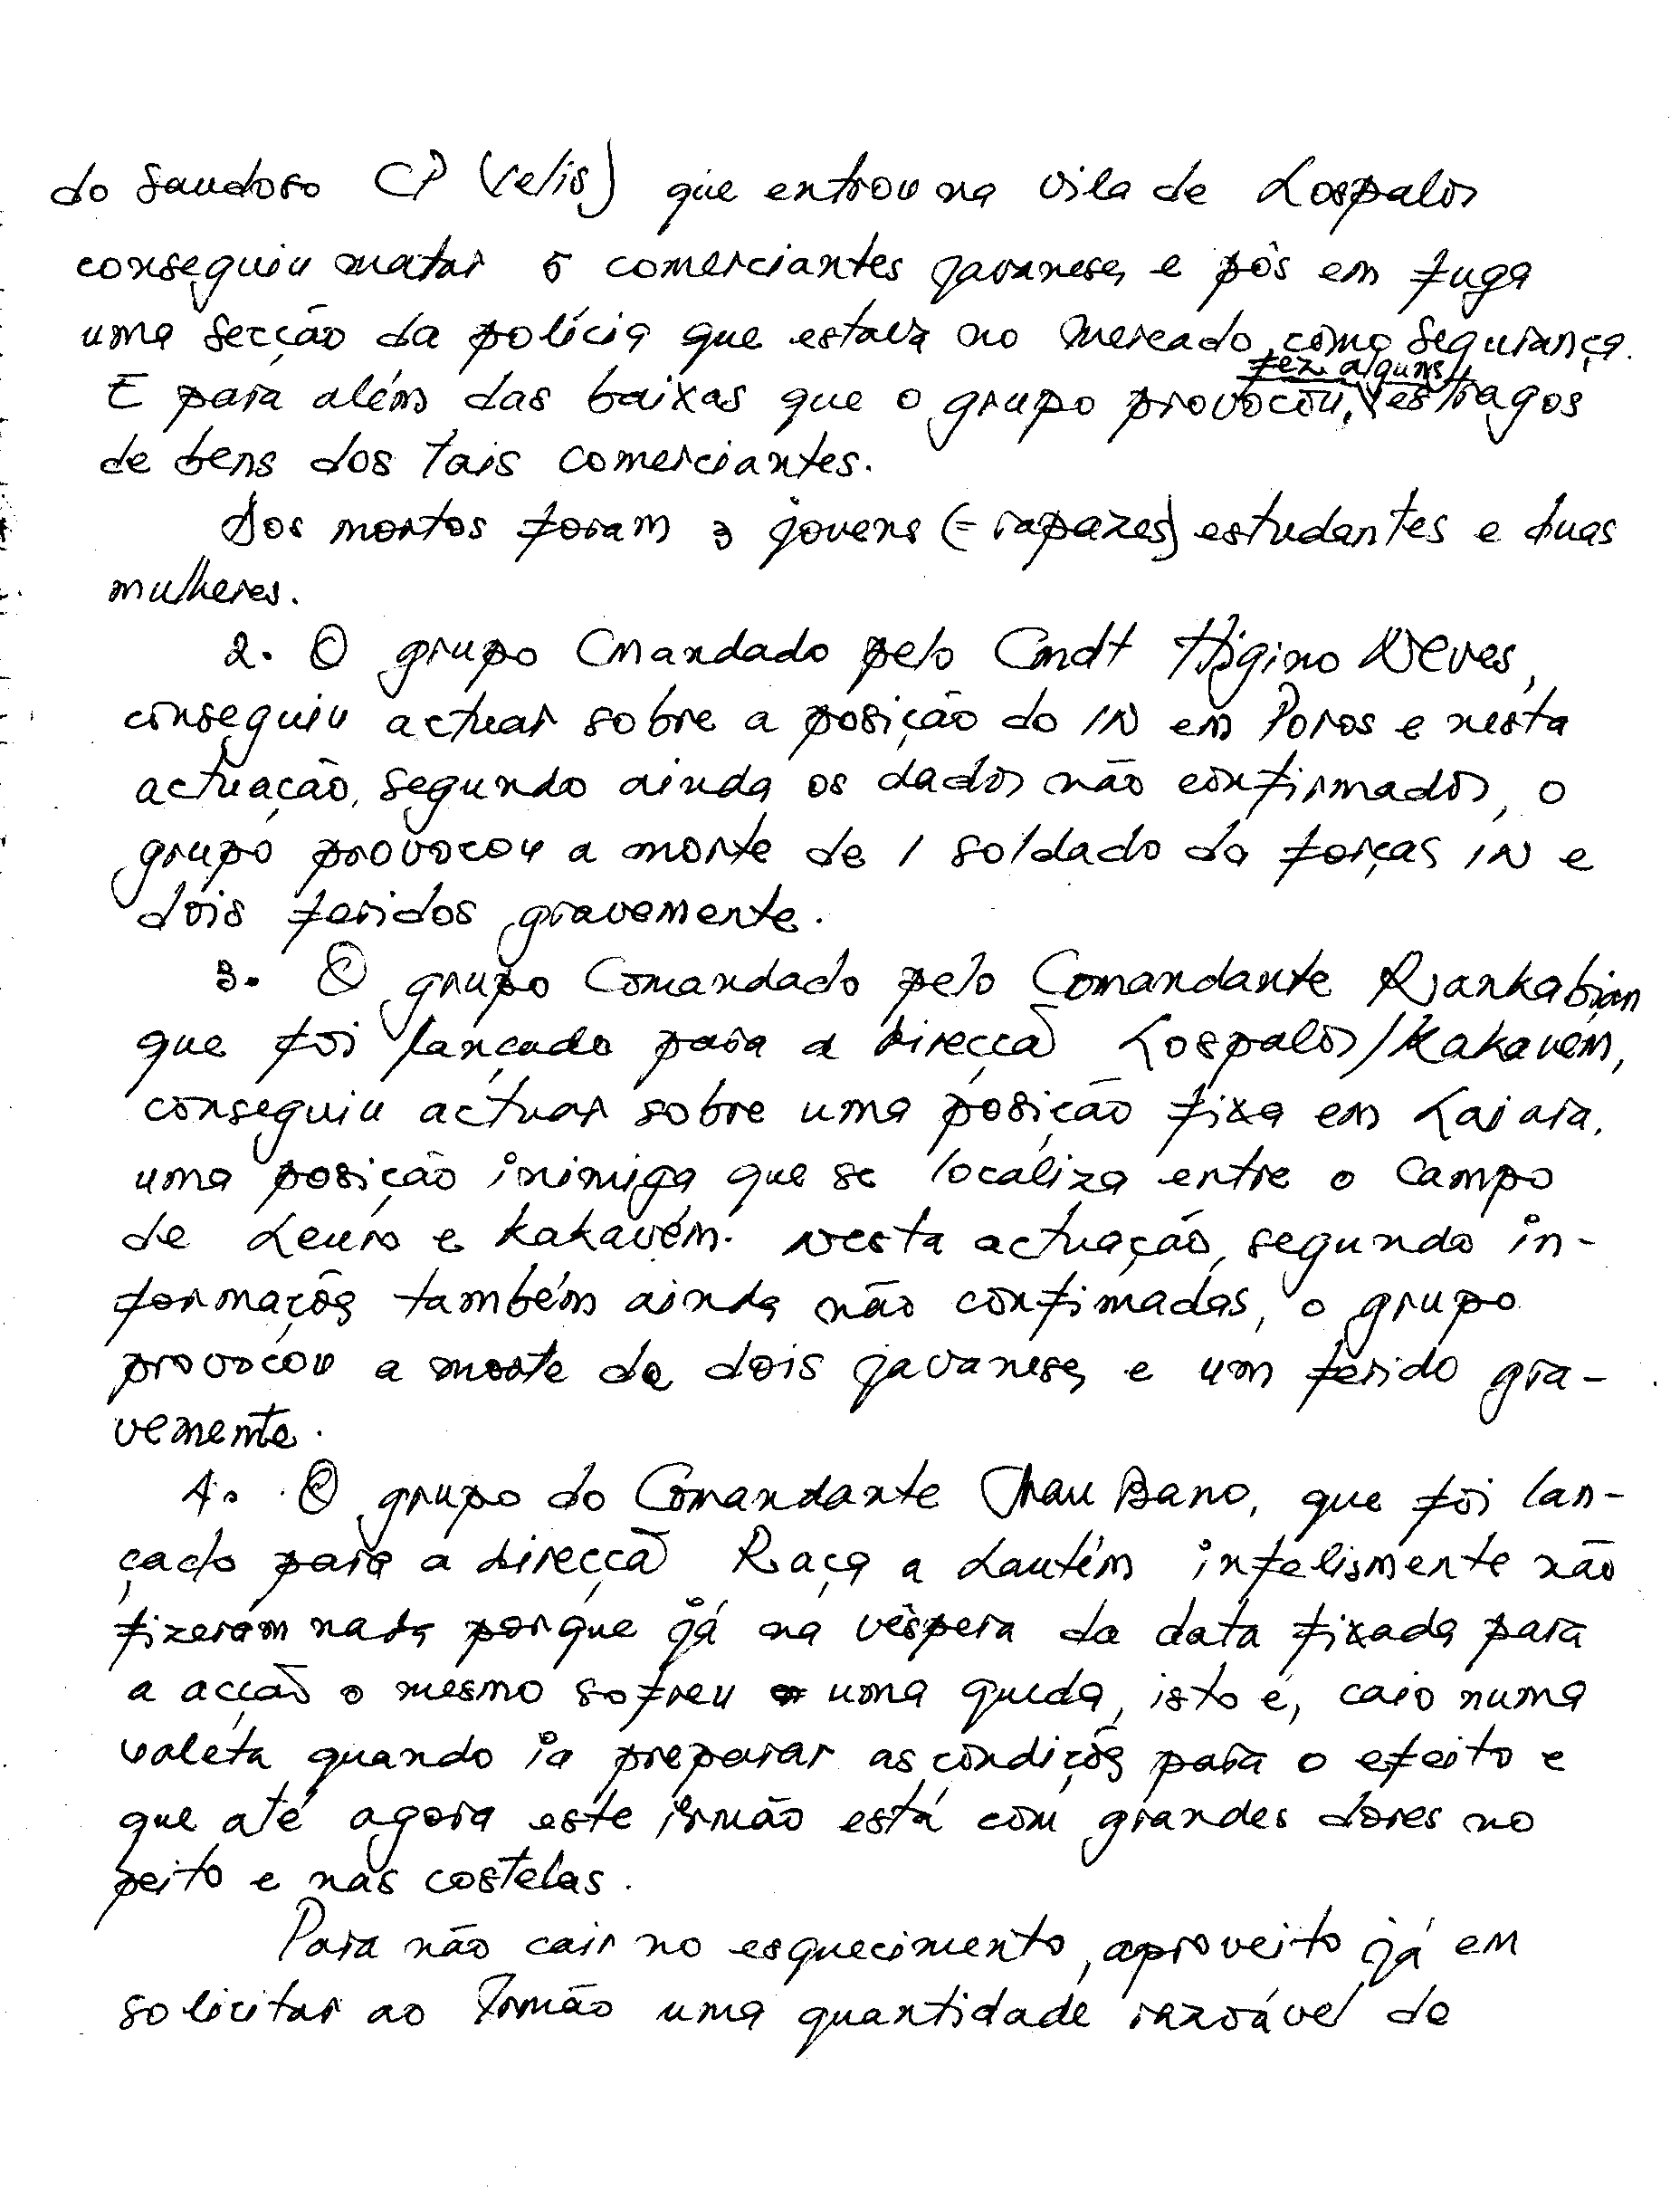 do saudoso CP (Velis) que entrou na vila de Lospalos
conseguiu matar 5 comerciantes javaneses e pôs em fuga
uma secção da polícia que estava no mercado, como segurança.
E para além das baixas que o grupo provocou, fez alguns estragos
de bens dos tais comerciantes.
Dos mortos foram 3 jovens (= rapazes) estudantes e duas
mulheres.
2. O grupo Cmandado pelo Cmdt Higino Neves,
conseguiu actuar sobre a posição do IN em Poros e nesta
actuação, segundo ainda os dados não confirmados, o
grupo provocou a morte de 1 soldado da forças IN e
dois feridos gravemente.
3. O grupo Comandado pelo Comandante
que foi lançado para a direcçã Lospalos/Kakavém,
conseguiu actuar sobre uma posição fixa em Laiara,
uma posição inimiga que se localiza entre o Campo
de Leuro e Kakavém. Nesta actuação, segundo in-
formações também ainda não confimadas, o grupo
provocou a morte de dois javaneses e um ferido gra-
vemente.
4. O grupo do Comandante Thau Bano, que foi lan-
çado para a direcçã Raça a Lautém infelismente não
fizeram nada porque já na véspera da data fixada para
a acção o mesmo sofreu uma queda, isto é, caio numa
valeta quando ia preparar as condições para o efeito e
que até agora este irmão está com grandes dores no
peito e nas costelas.
Para não cair no esquecimento, aproveito já em
solicitar ao Irmão uma quantidade razoável de